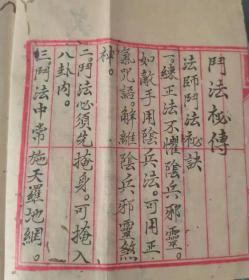 鬥法秘傳
法師鬥法秘訣
一練正法不懼陰兵邪靈。
如敵手用陰兵法。可用正
氣咒語。解離陰兵邪靈煞
神。
二。鬥法必須先掩身。可掩入
八卦内。
三。鬥法中常施天羅地網。